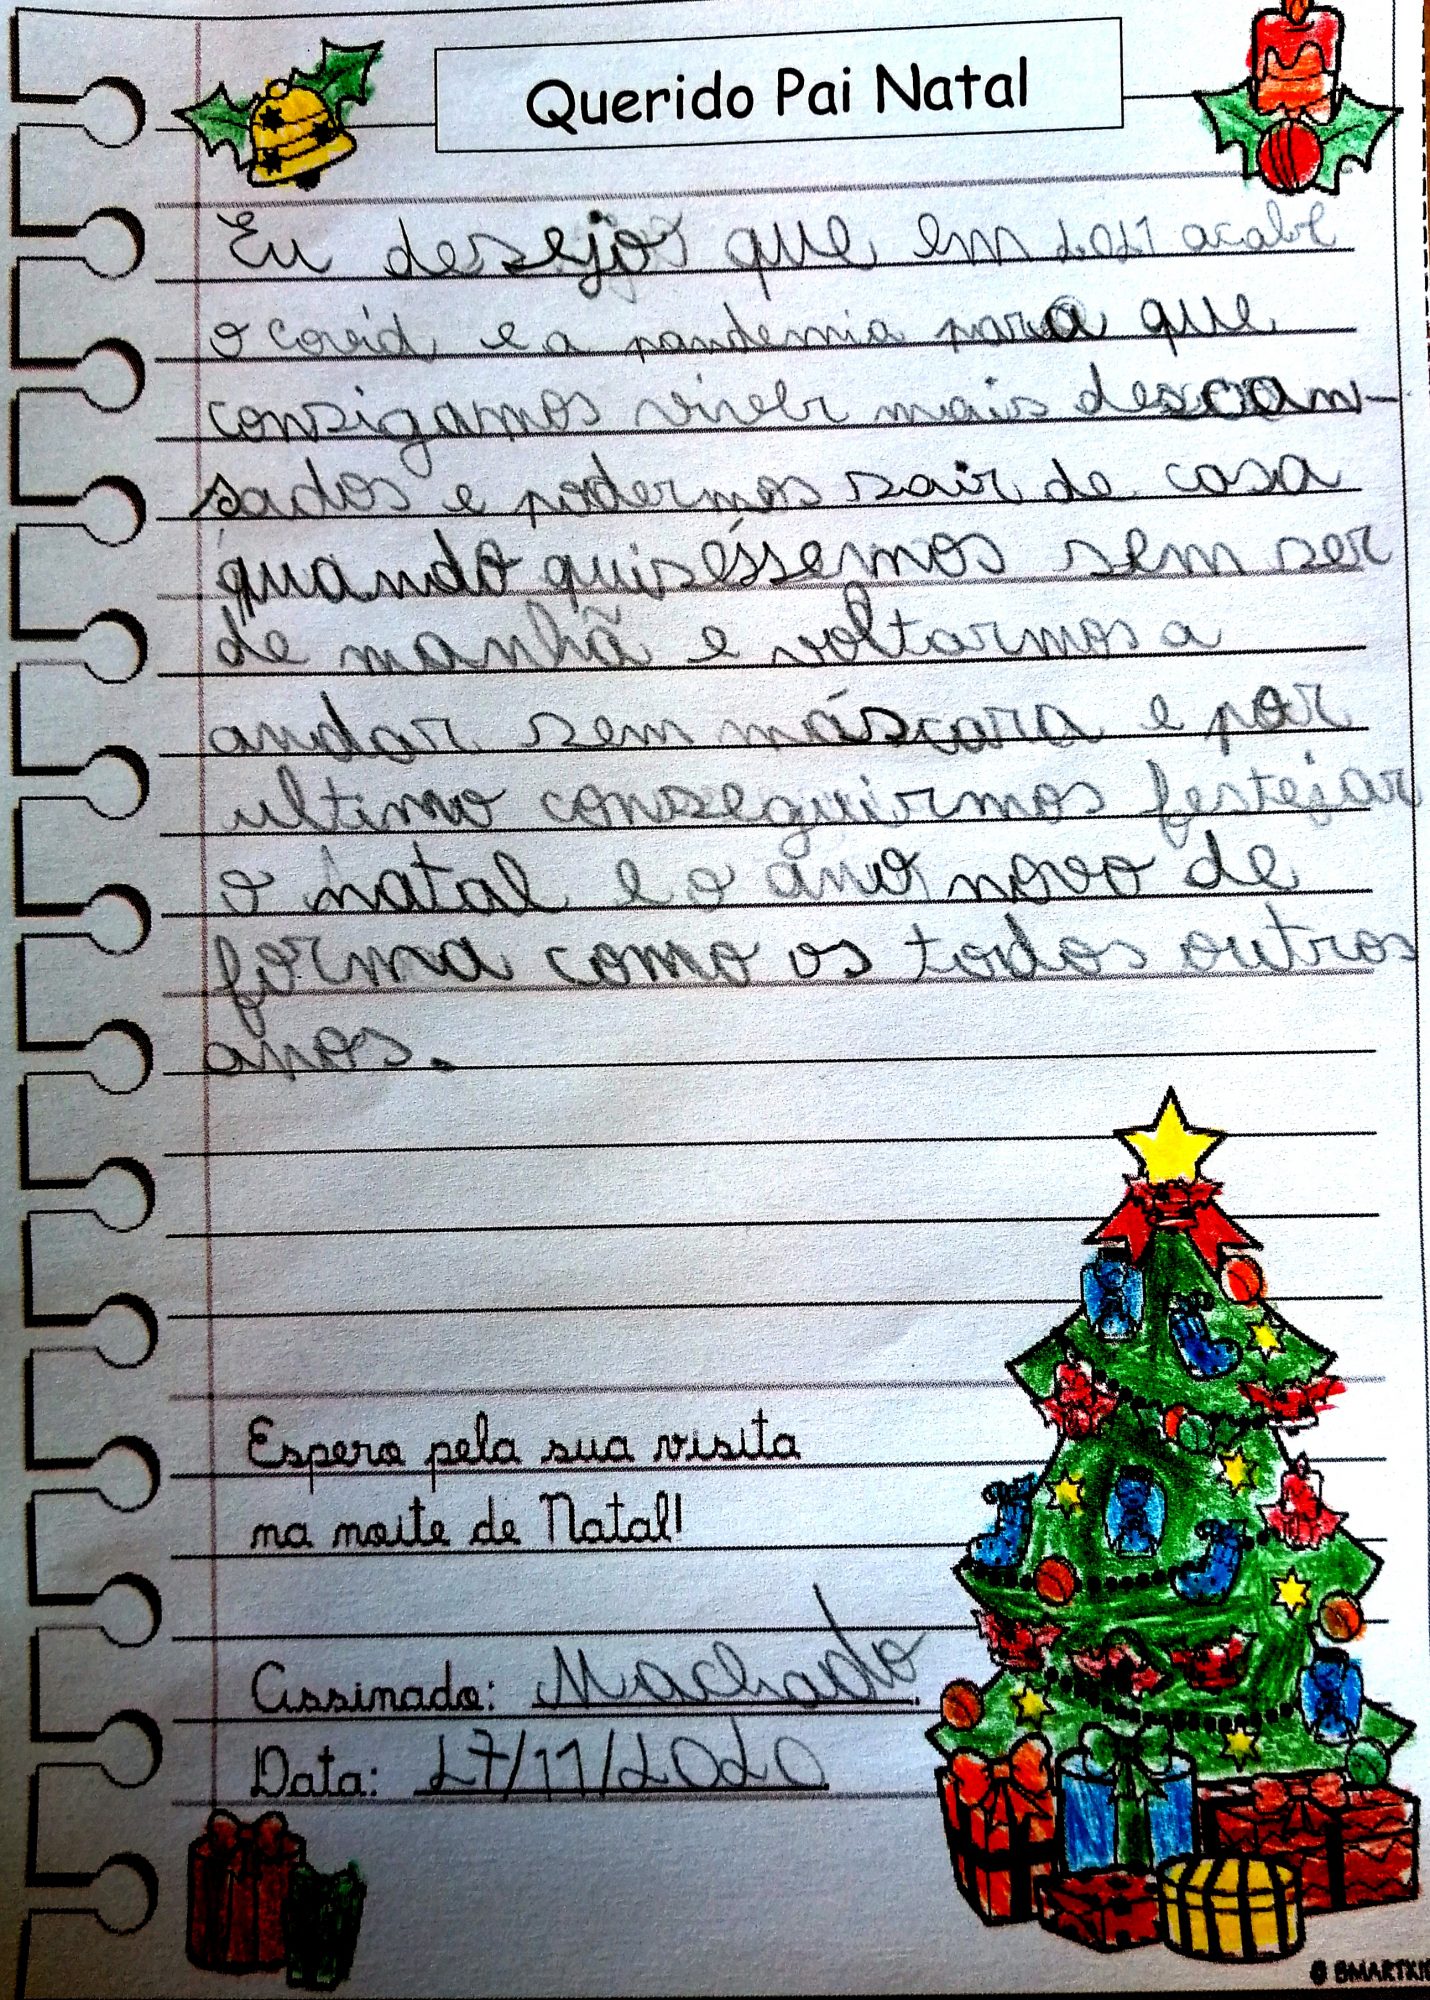 Querido Pai Natal
Eu desejo que em 2021 acabe
o covid e a pandemia para que
consigamos viver mais descam-
sados e podermos sair de casa
quando quiséssemos sem ser
de manhã e voltarmos a
andar sem máscara e por
ultimo conseguirmos festejar
o natal e o ano novo de
forma como os todos outros
anos.
Espero pela sua visita
na noite de Natal!
Assinado: Machado
Data: 27/11/2020